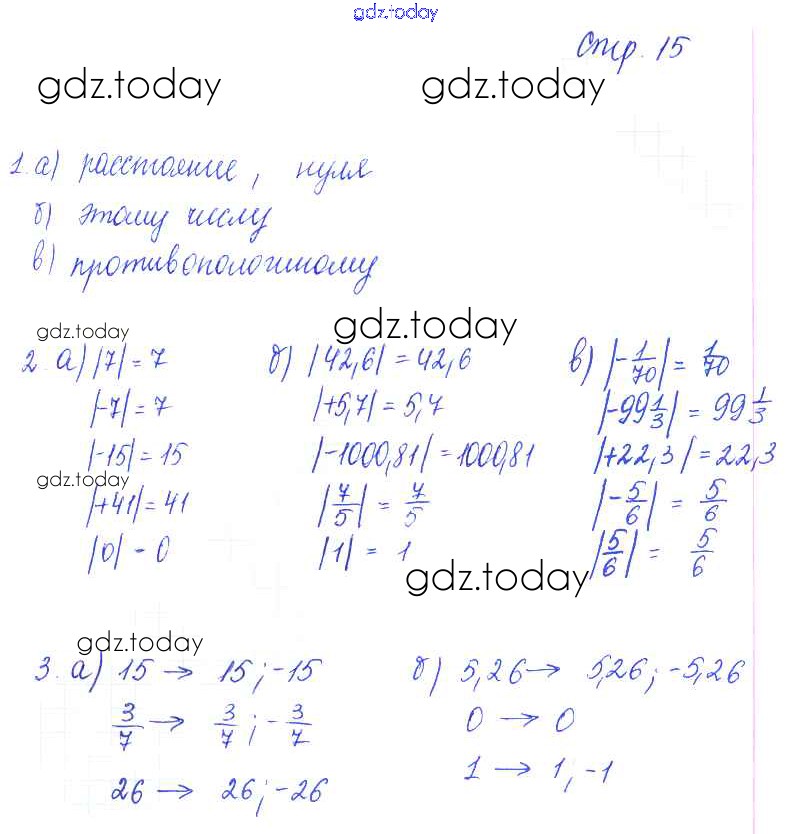 gdz.today
Стр. 15
gdz.today gdz.today
1. а) расстояние, нуля
б) этому числу
в) противоположному
gdz.today gdz.today
2. а) |7| = 7 б) |42,6| = 42,6 в) |-1/70| = 1/70
|-7| = 7 |+5,7| = 5,7 |-99 1/3| = 99 1/3
|-15| = 15 |-1000,81| = 1000,81 |+22,3| = 22,3
gdz.today
|+41| = 41 |7/5| = 7/5 |-5/6| = 5/6
|0| - 0 |1| = 1 |5/6| = 5/6
gdz.today
gdz.today
3. а) 15 → 15; -15 б) 5,26 → 5,26; -5,26
3/7 → 3/7; -3/7 0 → 0
26 → 26; -26 1 → 1; -1